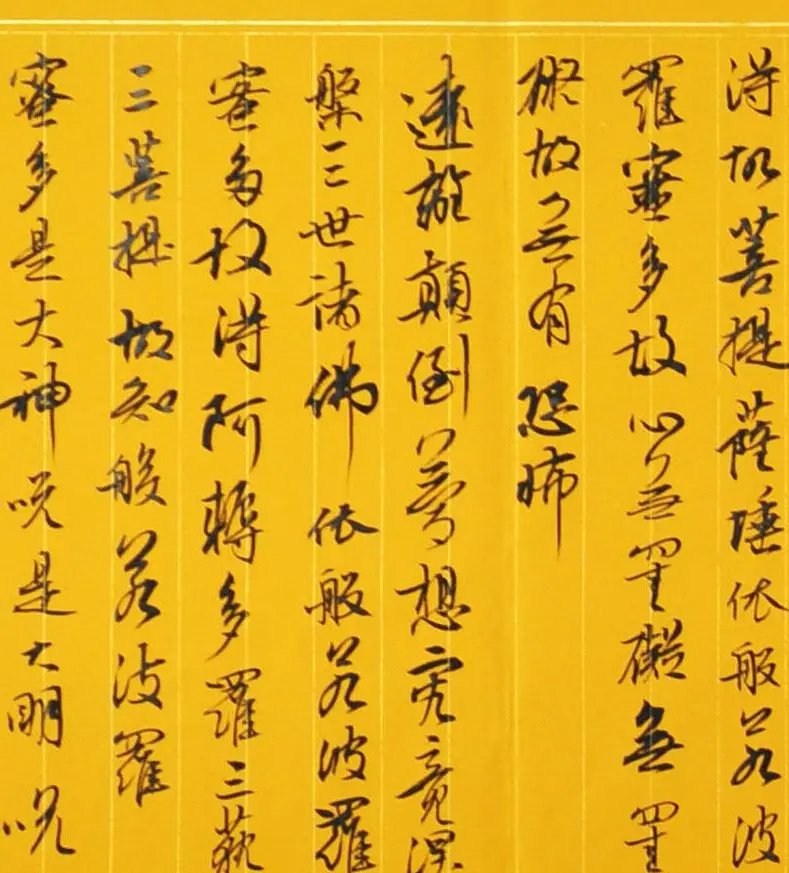 得故菩提薩埵依般若波
羅蜜多故心無罣礙無罣
礙故無有恐怖
遠離顛倒夢想究竟涅
槃三世諸佛依般若波羅
蜜多故得阿耨多羅三藐
三菩提故知般若波羅
蜜多是大神咒是大明咒